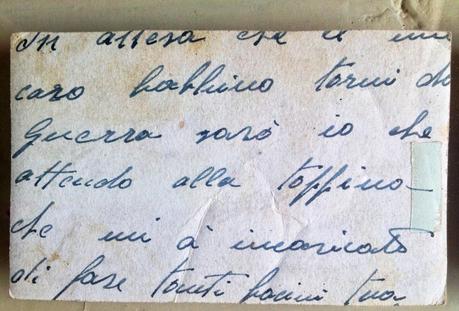 In attesa che il mio
caro babbino torni da
Guerra sarò io che
attendo alla toppina
che mi à incaricato
di fare tanti bacini tua